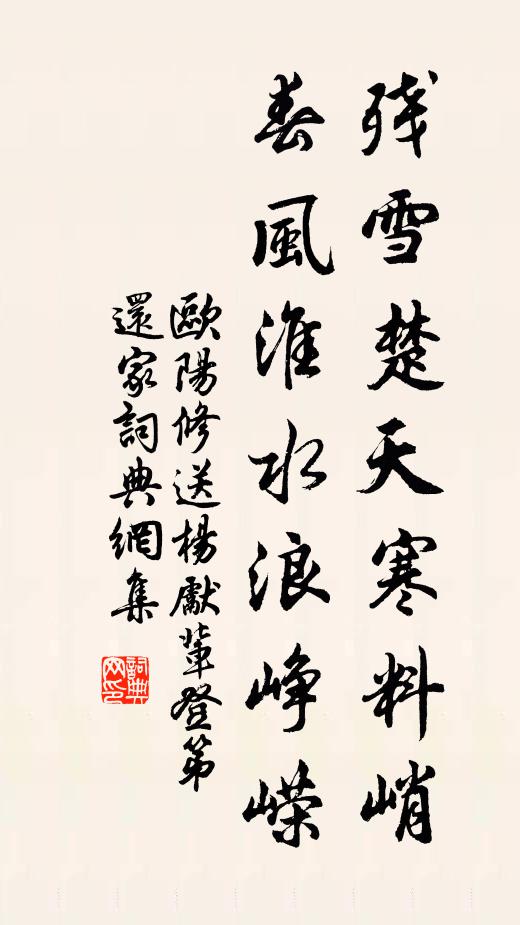 残雪楚天寒料峭
春風淮水浪峥嵘
歐陽修送楊獻輩登第
還家詞典網集
詞典網印